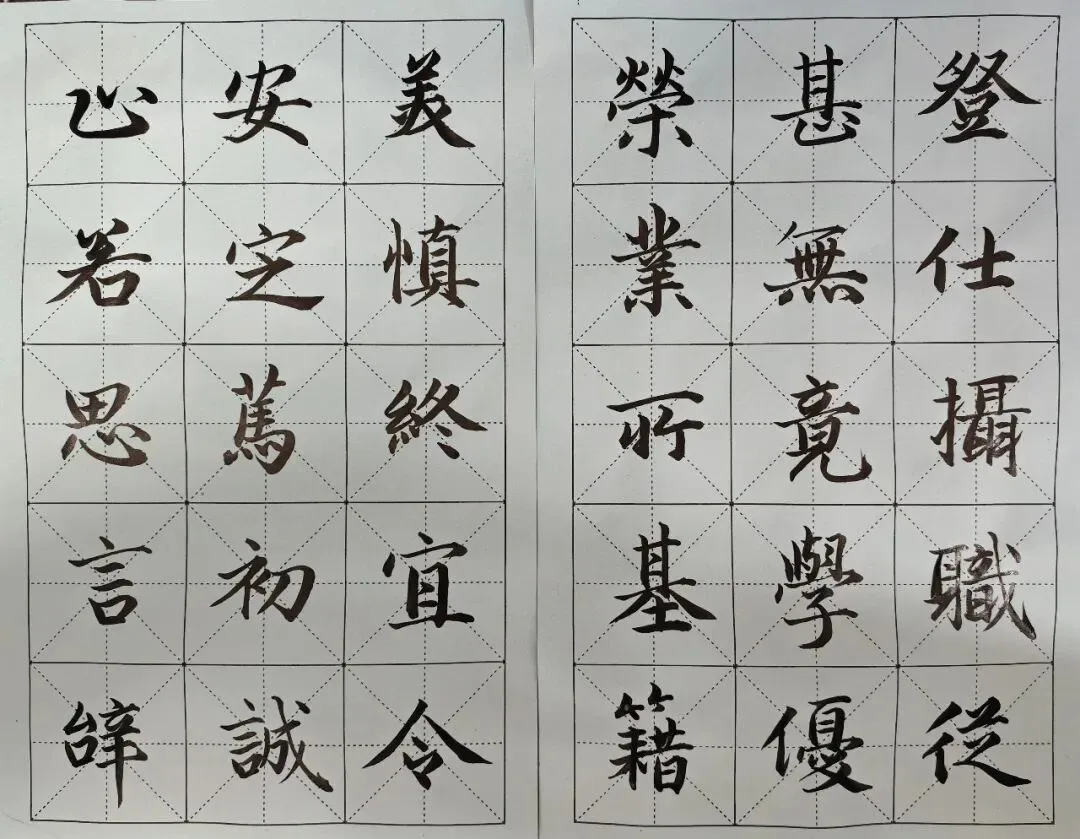 止若思言辝
安定篤初誠
美慎終宜令
榮業所基籍
甚無竟學優
登仕攝職從